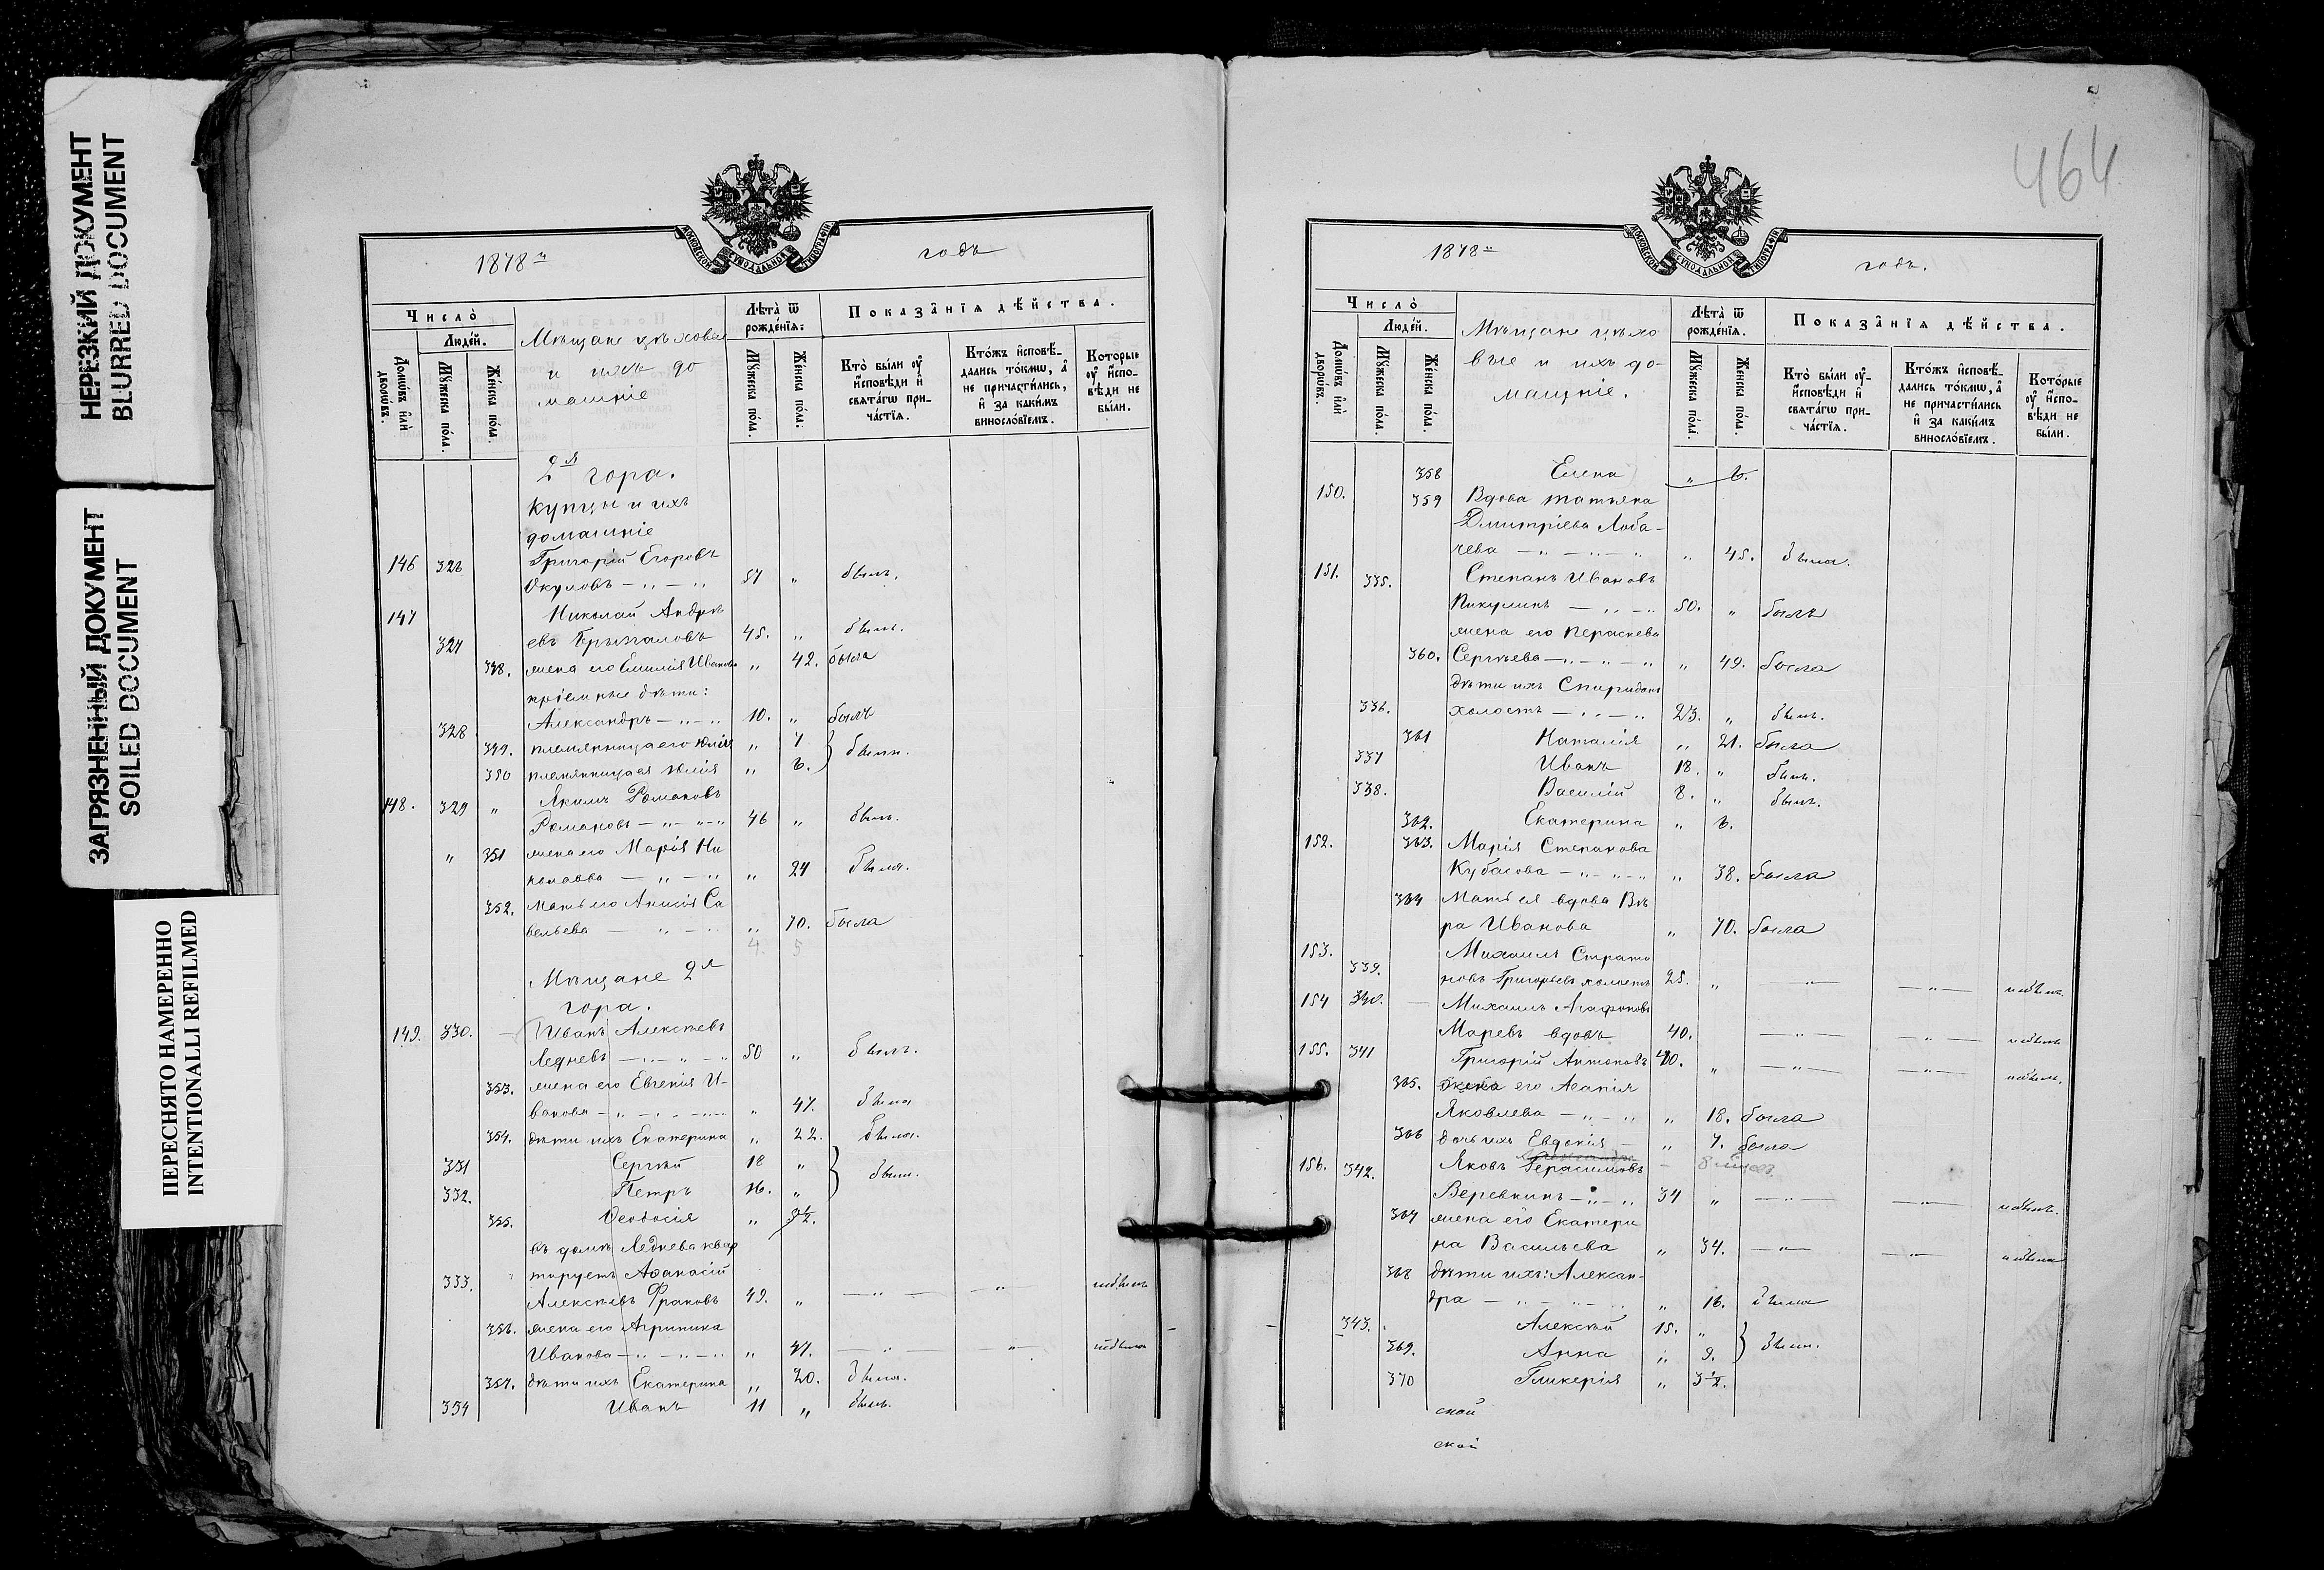 НЕРЕЗКИЙ ДОКУМЕНТ
BLURRED DOCUMENT
ЗАГРЯЗНЕННЫЙ ДОКУМЕНТ
SOILED DOCUMENT
ПЕРЕСНЯТО НАМЕРЕННО
INTENTIONALLI REFILMED
МОСКОВСКОЙ СѴНОДАЛЬНОЙ ТИПОГРАФІИ
1878 годъ
Число̀ Лѣта̀ ѿ рожде́нїѧ: Показа̑нїѧ дѣ́йства.
Домѡ́въ и҆лѝ дворѡ́въ. Люде́й. Мꙋ́жеска по́ла. Же́нска по́ла.
Мѣщане цѣховые
и ихъ до
машніе
Мꙋ́жеска по́ла. Же́нска по́ла:
Кто̀ бы́ли ᲂу҆ и҆сповѣ́ди и҆ свѧта́гѡ прича́стїѧ.
Кто́жъ и҆сповѣ́дались то́кмѡ, а҆ не причасти́лись, и҆ за каки́мъ винослові́емъ.
Кото́рые ᲂу҆ и҆сповѣ́ди не бы́ли.
2я гора.
Купцы и ихъ
домашніе
146 326 Григорій Егоровъ
Окуловъ — „ — „ 57 „ былъ.
147 Николай Андре
327 евъ Брызгаловъ 45. „ былъ.
348. жена его Емилія Иванова „ 42. была
пріемные дѣти:
328 Александръ — „ — „ 10. „ былъ
349. племянница его Юлія „ 7 } были.
350 племянница ея Юлія „ 6.
148. 329 „ Якимъ Романовъ
Романовъ — „ — „ — „ 46 „ былъ.
„ 351 жена его Марія Ни
колаева — „ — „ „ 24 была.
352. мать его Анисія Са
вельева — „ — „ „ 70. была
4. 5
Мѣщане 2я
гора.
149. 330. — Иванъ Алексѣевъ
Ледневъ — „ — „ — „ 50 „ былъ.
353. жена его Евгенія И-
ванова — „ — „ — „ „ 47. была
354. дѣти ихъ Екатерина „ 22. была.
331 Сергѣй 18 „ } были.
332. Петръ 16. „
355. Ѳеодосія „ 3½.
въ домѣ Леднева квар
333. тируетъ Аѳанасій
Алексѣевъ Фраковъ 49. „ — „ — — „ — небылъ
356. жена его Агрипина
Иванова — „ — „ — „ „ 47. — „ — — „ — небыла
357. дѣти ихъ Екатерина „ 20. была.
334 Иванъ 11 „ былъ.
464
МОСКОВСКОЙ СѴНОДАЛЬНОЙ ТИПОГРАФІИ
1878 годъ.
Число̀ Лѣта̀ ѿ рожде́нїѧ. Показа̑нїѧ дѣ́йства.
Домѡ́въ и҆лѝ дворѡ́въ. Люде́й. Мꙋ́жеска по́ла. Же́нска по́ла.
Мѣщане цѣхо
вые и ихъ до-
машніе.
Мꙋ́жеска по́ла. Же́нска по́ла.
Кто̀ бы́ли ᲂу҆ и҆сповѣ́ди и҆ свѧта́гѡ прича́стїѧ.
Кто́жъ и҆сповѣ́дались то́кмѡ, а҆ не причасти́лись и҆ за каки́мъ винослові́емъ.
Кото́рые ᲂу҆ и҆сповѣ́ди не бы́ли.
358 Елена „ 6.
150. 359 Вдова Татьяна
Дмитріева Лоба-
чева — „ — „ — „ „ 45. была.
151. 335. Степанъ Ивановъ
Пикулинъ — „ — „ 50. „ былъ
жена его Параскева
360. Сергѣева — „ — „ — „ „ 49. была
дѣти ихъ Спиридонъ
336. холостъ — „ — „ 23. „ былъ.
361 Наталія „ 21. была
337 Иванъ 18. „ былъ.
338. Василій 8. „ былъ.
362. Екатерина „ 6.
152. 363. Марія Степанова
Кубасова — „ — „ — „ „ 38. была
364 Мать ея вдова Вѣ
ра Иванова „ 70. была
153. Михаилъ Страто
339. новъ Григорьевъ холостъ 25. „ — „ — — „ — небылъ.
154 340. — Михаилъ Агафоновъ
Маревъ вдовъ 40. — „ — — „ — небылъ
155. 341 Григорій Антоновъ 40. „ — „ — — „ — небылъ.
365. жена его Агапія
Яковлева — „ — „ „ 18. была
366 дочь ихъ Евдокія — „ 7. была
156. 342. Яковъ Герасимовъ
Веревкинъ — „ — „ 34 „ — „ — — „ — небылъ.
367 жена его Екатери
на Васильева „ 34. — „ — — „ — небыла
368 дѣти ихъ: Алексан-
дра — „ — „ — „ „ 16. была
343. Алексѣй 15. „ } были.
369. Анна „ 9.
370 Гликерія „ 3½.
ской
ской